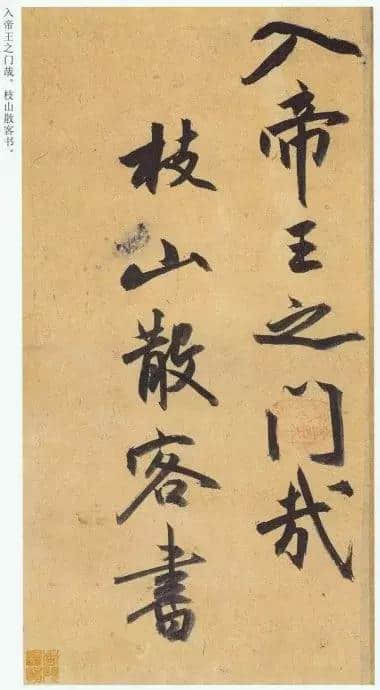 入帝王之门哉
枝山散客書
入帝王之门哉。枝山散客书。